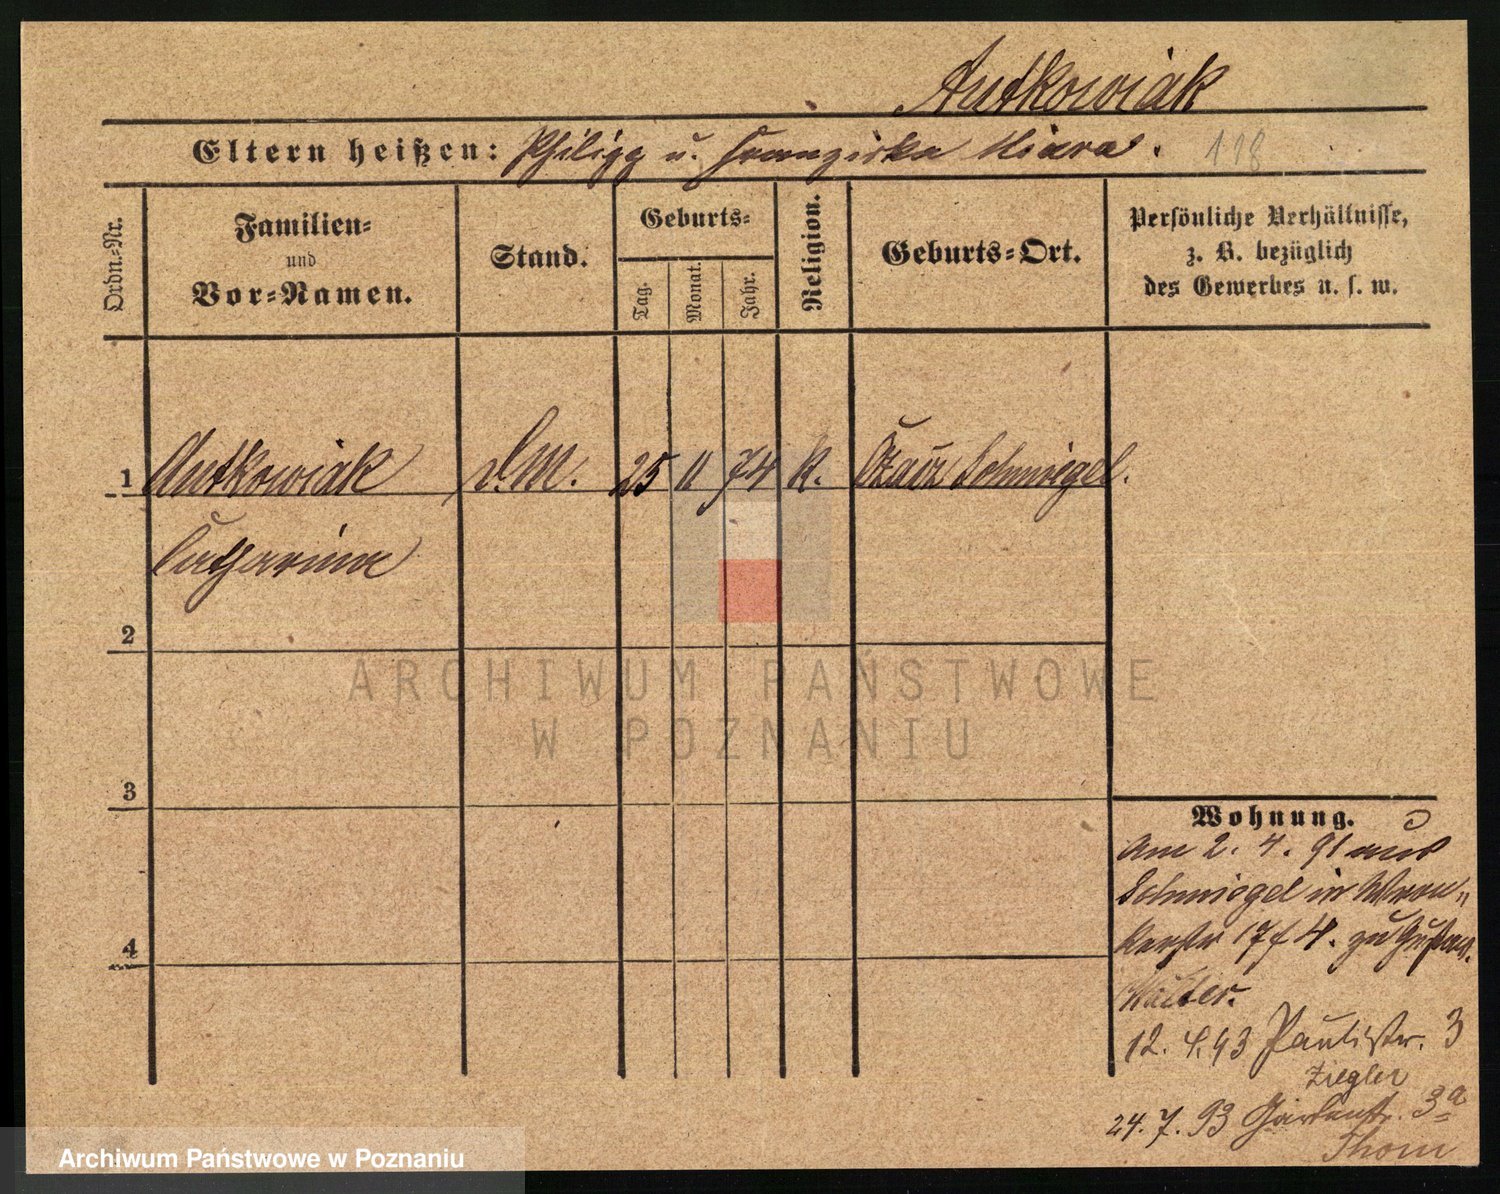 Antkowiak
Eltern heißen: Philipp u. Franziska Miara. 118
Ordn.-Nr.
Familien-
und
Vor-Namen.
Stand.
Geburts-
Tag.
Monat.
Jahr.
Religion.
Geburts-Ort.
Persönliche Verhältnisse,
z. B. bezüglich
des Gewerbes u. s. w.
1 Antkowiak d. M. 25 11 74 K. Schmiegel.
Catharina
2
3
4
Wohnung.
Am 2. 4. 91 aus
Schmiegel in Wron-
kerstr 17 f 4. zu Gustav
Walter.
12. 4. 93 Paulistr. 3
Ziegler
24. 7. 93 Gartenstr. 3a
Thom
ARCHIWUM PAŃSTWOWE
W POZNANIU
Archiwum Państwowe w Poznaniu